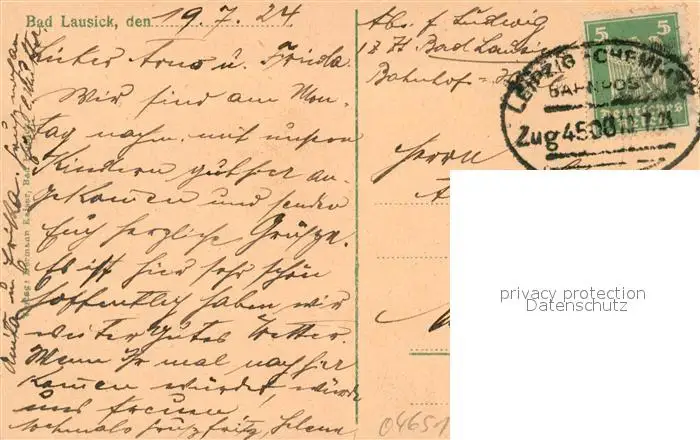 Bad Lausick, den 19.7.24
Lieber Arno u. Frieda.
Wir sind am Mon-
tag nachm. mit unsern
Kindern gut hier an-
gekommen und senden
Euch herzliche Grüsse.
Es ist hier sehr schön
hoffentlich haben wir
weiter gutes Wetter.
Wenn Ihr mal nach hier
kommen würdet, würde
uns freuen.
Nochmals grüsst Fritz, Helene
Abs. f. Ludwig
z Zt Bad Lausick
Bahnhof-
5
5
LEIPZIG-CHEMNITZ
BAHNPOST
Zug 4500 19.7.24
Herrn
A
privacy protection
Datenschutz
0465